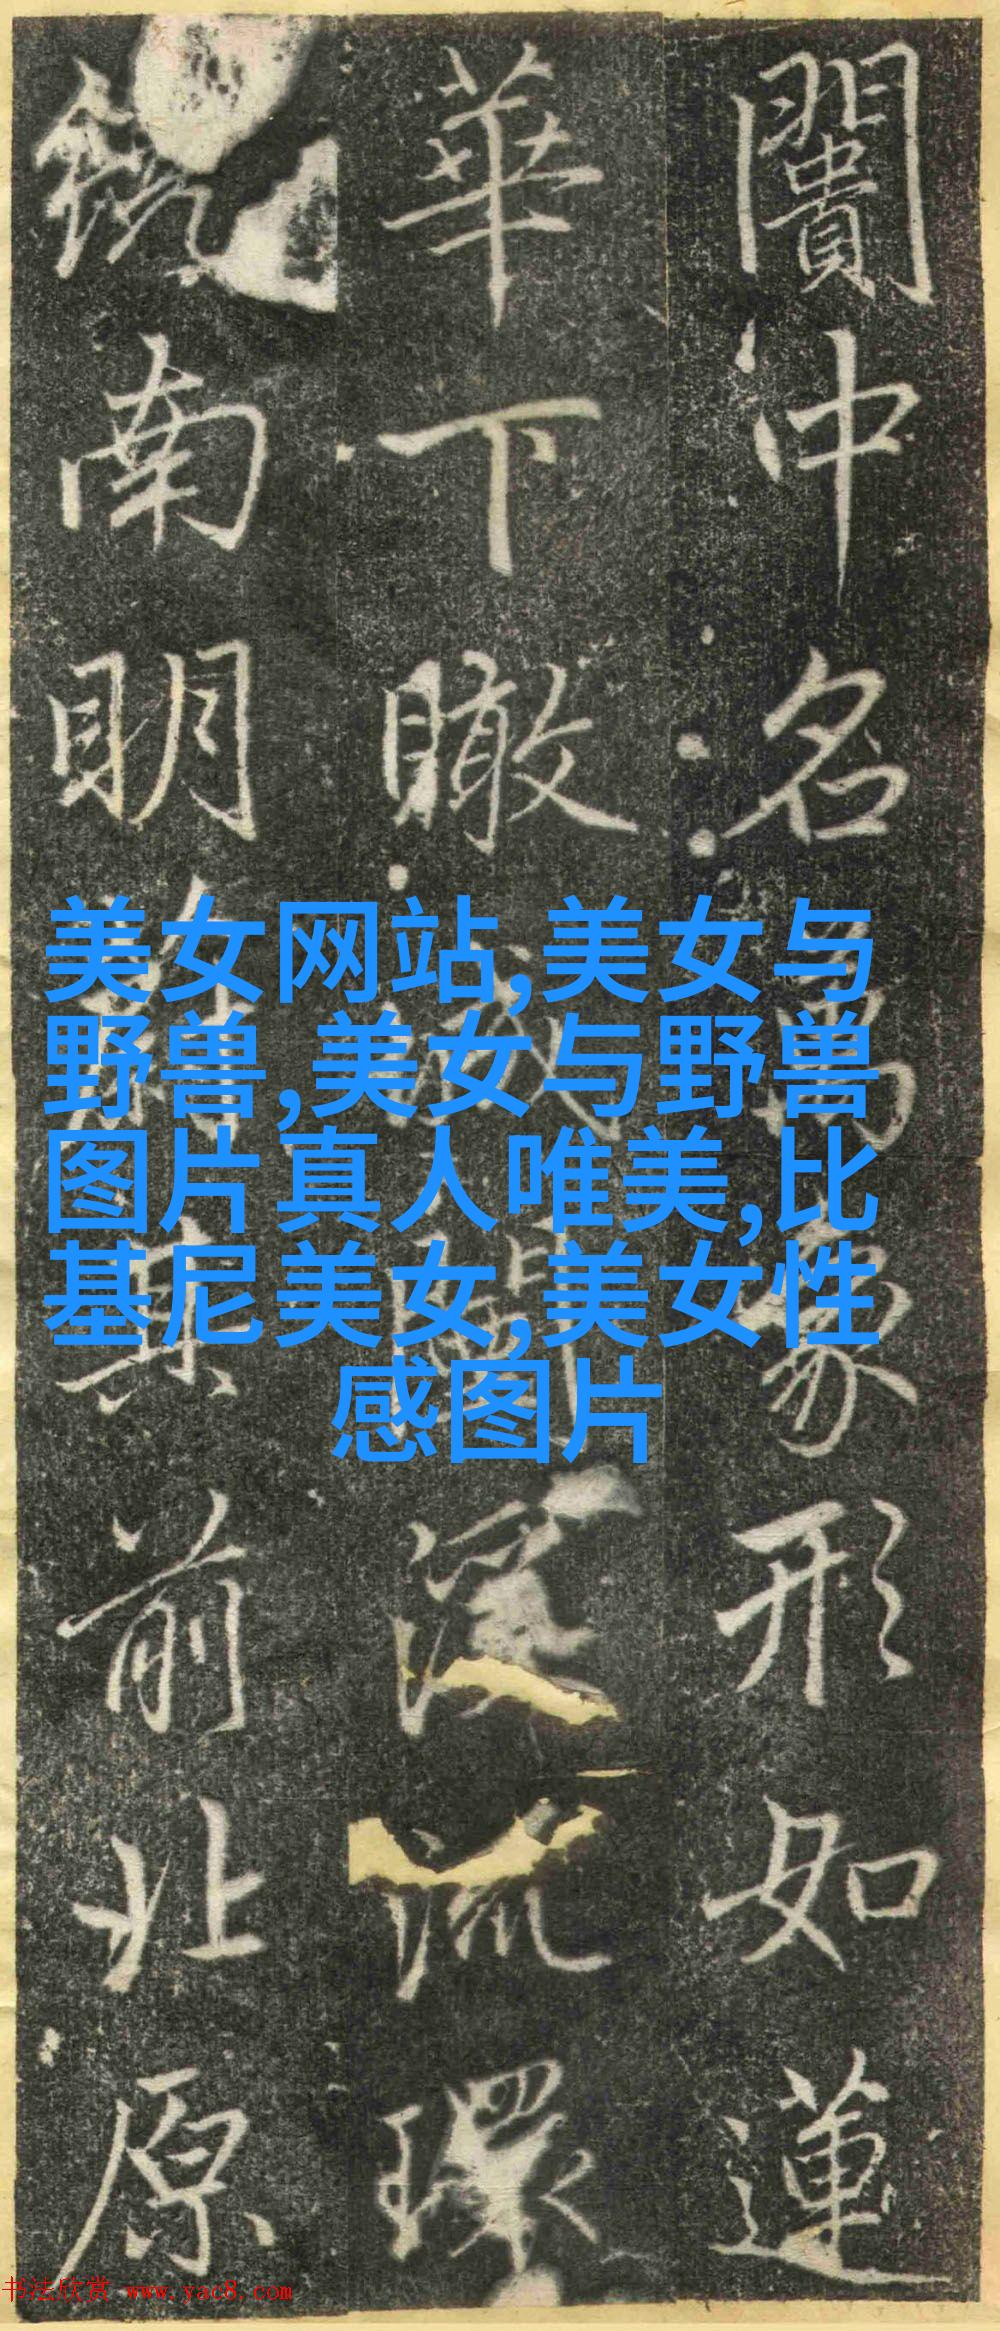 闠冲名為象形如蓮
華下瞰城深流環
鏡南明其前北原
美女网站,美女与
野兽,美女与野兽
图片真人唯美,比
基尼美女,美女性
感图片
书法欣赏 www.yac8.com